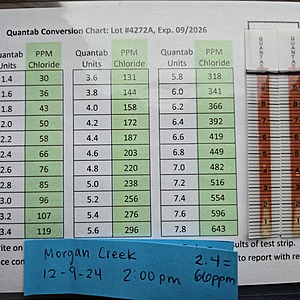 Quantab Conversion Chart: Lot #4272A, Exp. 09/2026
Units PPM Chloride Quantab Units PPM Chloride Quantab Units PPM Chloride
1.4 30 3.6 131 5.8 318
1.6 36 3.8 144 6.0 341
1.8 43 4.0 158 6.2 366
2.0 50 4.2 172 6.4 392
2.2 58 4.4 187 6.6 419
2.4 66 4.6 203 6.8 449
2.6 76 4.8 220 7.0 482
2.8 85 5.0 238 7.2 516
3.0 96 5.2 256 7.4 554
3.2 107 5.4 276 7.6 596
3.4 119 5.6 296 7.8 643
rite on
sults of test strip.
ce con
to report with re
Morgan Creek 2.4=
12-9-24 2:00pm 66ppm
QUANTAB
QUANTAB